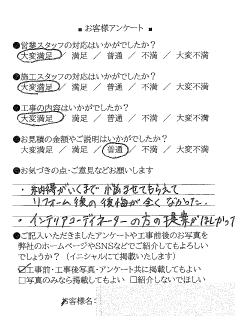 ■ お客様アンケート ■
●営業スタッフの対応はいかがでしたか?
大変満足 / 満足 / 普通 / 不満 / 大変不満
●施工スタッフの対応はいかがでしたか?
大変満足 / 満足 / 普通 / 不満 / 大変不満
●工事の内容はいかがでしたか?
大変満足 / 満足 / 普通 / 不満 / 大変不満
●お見積の金額やご説明はいかがでしたか?
大変満足 / 満足 / 普通 / 不満 / 大変不満
●お気づきの点・ご意見などお願いします
・納得がいくまで悩ませてもらえて
リフォーム後の後悔が全くなかった。
・インテリアコーディネーターの方の提案がほしかった
●ご記入いただきましたアンケートや工事前後のお写真を
弊社のホームページやSNSなどでご紹介してもよろしい
でしょうか?(イニシャルにて掲載いたします)
☑工事前・工事後写真・アンケート共に掲載してもよい
□写真のみなら掲載してもよい □紹介しないでほしい
お客様名: